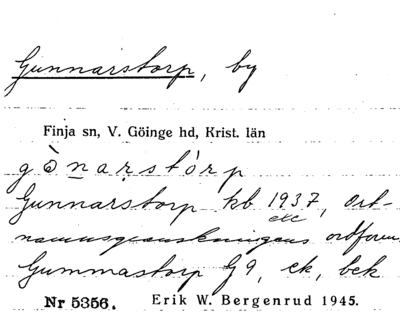 Gunnarstorp, by
Finja sn, V. Göinge hd, Krist. län
gònarstórp
Gunnarstorp kb 1937, ort-
etc
namnsgranskningens ordform
Gummastorp G9, ek, bek
Nr 5356. Erik W. Bergenrud 1945.